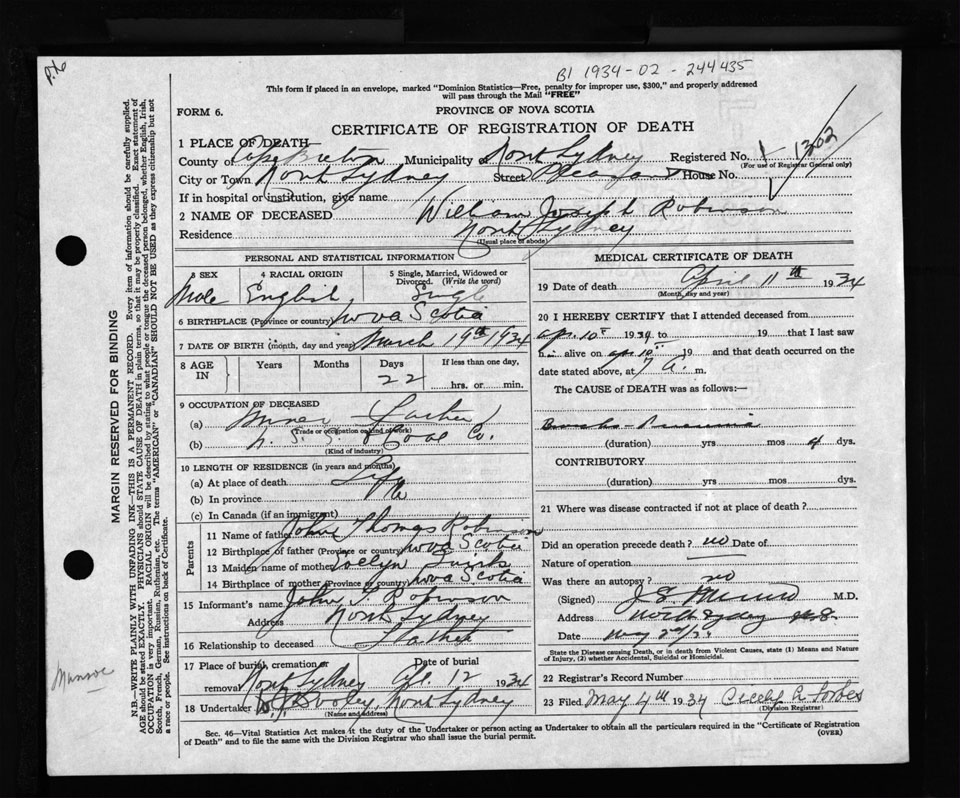 B1 1934-02-244435
This form if placed in an envelope, marked "Dominion Statistics—Free, penalty for improper use, $300," and properly addressed
will pass through the Mail "FREE"
FORM 6.
PROVINCE OF NOVA SCOTIA
CERTIFICATE OF REGISTRATION OF DEATH
1 PLACE OF DEATH
County of Cape Breton Municipality North Sydney Registered No. 1302
(For use of Registrar General only)
City or Town North Sydney Street Pleasant House No.
If in hospital or institution, give name
2 NAME OF DECEASED William Joseph Robinson
Residence North Sydney
(Usual place of abode)
PERSONAL AND STATISTICAL INFORMATION
3 SEX Male
4 RACIAL ORIGIN English
5 Single, Married, Widowed or Divorced. (Write the word) Single
6 BIRTHPLACE (Province or country) Nova Scotia
7 DATE OF BIRTH (month, day and year) March 19th 1934
8 AGE IN Years Months Days 22 If less than one day, hrs. or min.
9 OCCUPATION OF DECEASED
(a) Miner Father
(Trade or occupation or kind of work)
(b) N. S. S. & Coal Co.
(Kind of industry)
10 LENGTH OF RESIDENCE (in years and months)
(a) At place of death Life
(b) In province
(c) In Canada (if an immigrant)
Parents
11 Name of father John Thomas Robinson
12 Birthplace of father (Province or country) Nova Scotia
13 Maiden name of mother
14 Birthplace of mother (Province or country) Nova Scotia
15 Informant's name John T. Robinson
Address North Sydney
16 Relationship to deceased Father
17 Place of burial, cremation or removal North Sydney Date of burial Apr. 12 1934
18 Undertaker Dooley, North Sydney
(Name and address)
MEDICAL CERTIFICATE OF DEATH
19 Date of death April 11th 1934
(Month, day and year)
20 I HEREBY CERTIFY that I attended deceased from
Apr. 10th 1934 to 19 that I last saw
h alive on Apr. 10th 19 and that death occurred on the
date stated above, at 7 a. m.
The CAUSE of DEATH was as follows:—
Broncho-Pneumonia
(duration) yrs mos 4 dys.
CONTRIBUTORY
(duration) yrs. mos. dys.
21 Where was disease contracted if not at place of death?
Did an operation precede death? no Date of
Nature of operation
Was there an autopsy? no
(Signed) M.D.
Address North Sydney N.S.
Date May 2nd/34
State the Disease causing Death, or in death from Violent Causes, state (1) Means and
Nature of Injury, (2) whether Accidental, Suicidal or Homicidal.
22 Registrar's Record Number
23 Filed May 4th 1934 Forbes
(Division Registrar)
Sec. 46—Vital Statistics Act makes it the duty of the Undertaker or person acting as Undertaker to obtain all the particulars required in the "Certificate of Registration
of Death" and to file the same with the Division Registrar who shall issue the burial permit.
(OVER)
MARGIN RESERVED FOR BINDING
N.B.—WRITE PLAINLY WITH UNFADING INK—THIS IS A PERMANENT RECORD. Every item of information should be carefully supplied.
AGE should be stated EXACTLY. PHYSICIANS should STATE CAUSE OF DEATH in plain terms, so that it may be properly classified. Exact statement of
OCCUPATION is very important. RACIAL ORIGIN will be described by stating to what people or tongue the deceased person belonged, whether English, Irish,
Scotch, French, German, Russian, Ruthenian, etc. The terms "AMERICAN" or "CANADIAN" SHOULD NOT BE USED as they express citizenship but not
a race or people. See instructions on back of Certificate.
Munroe